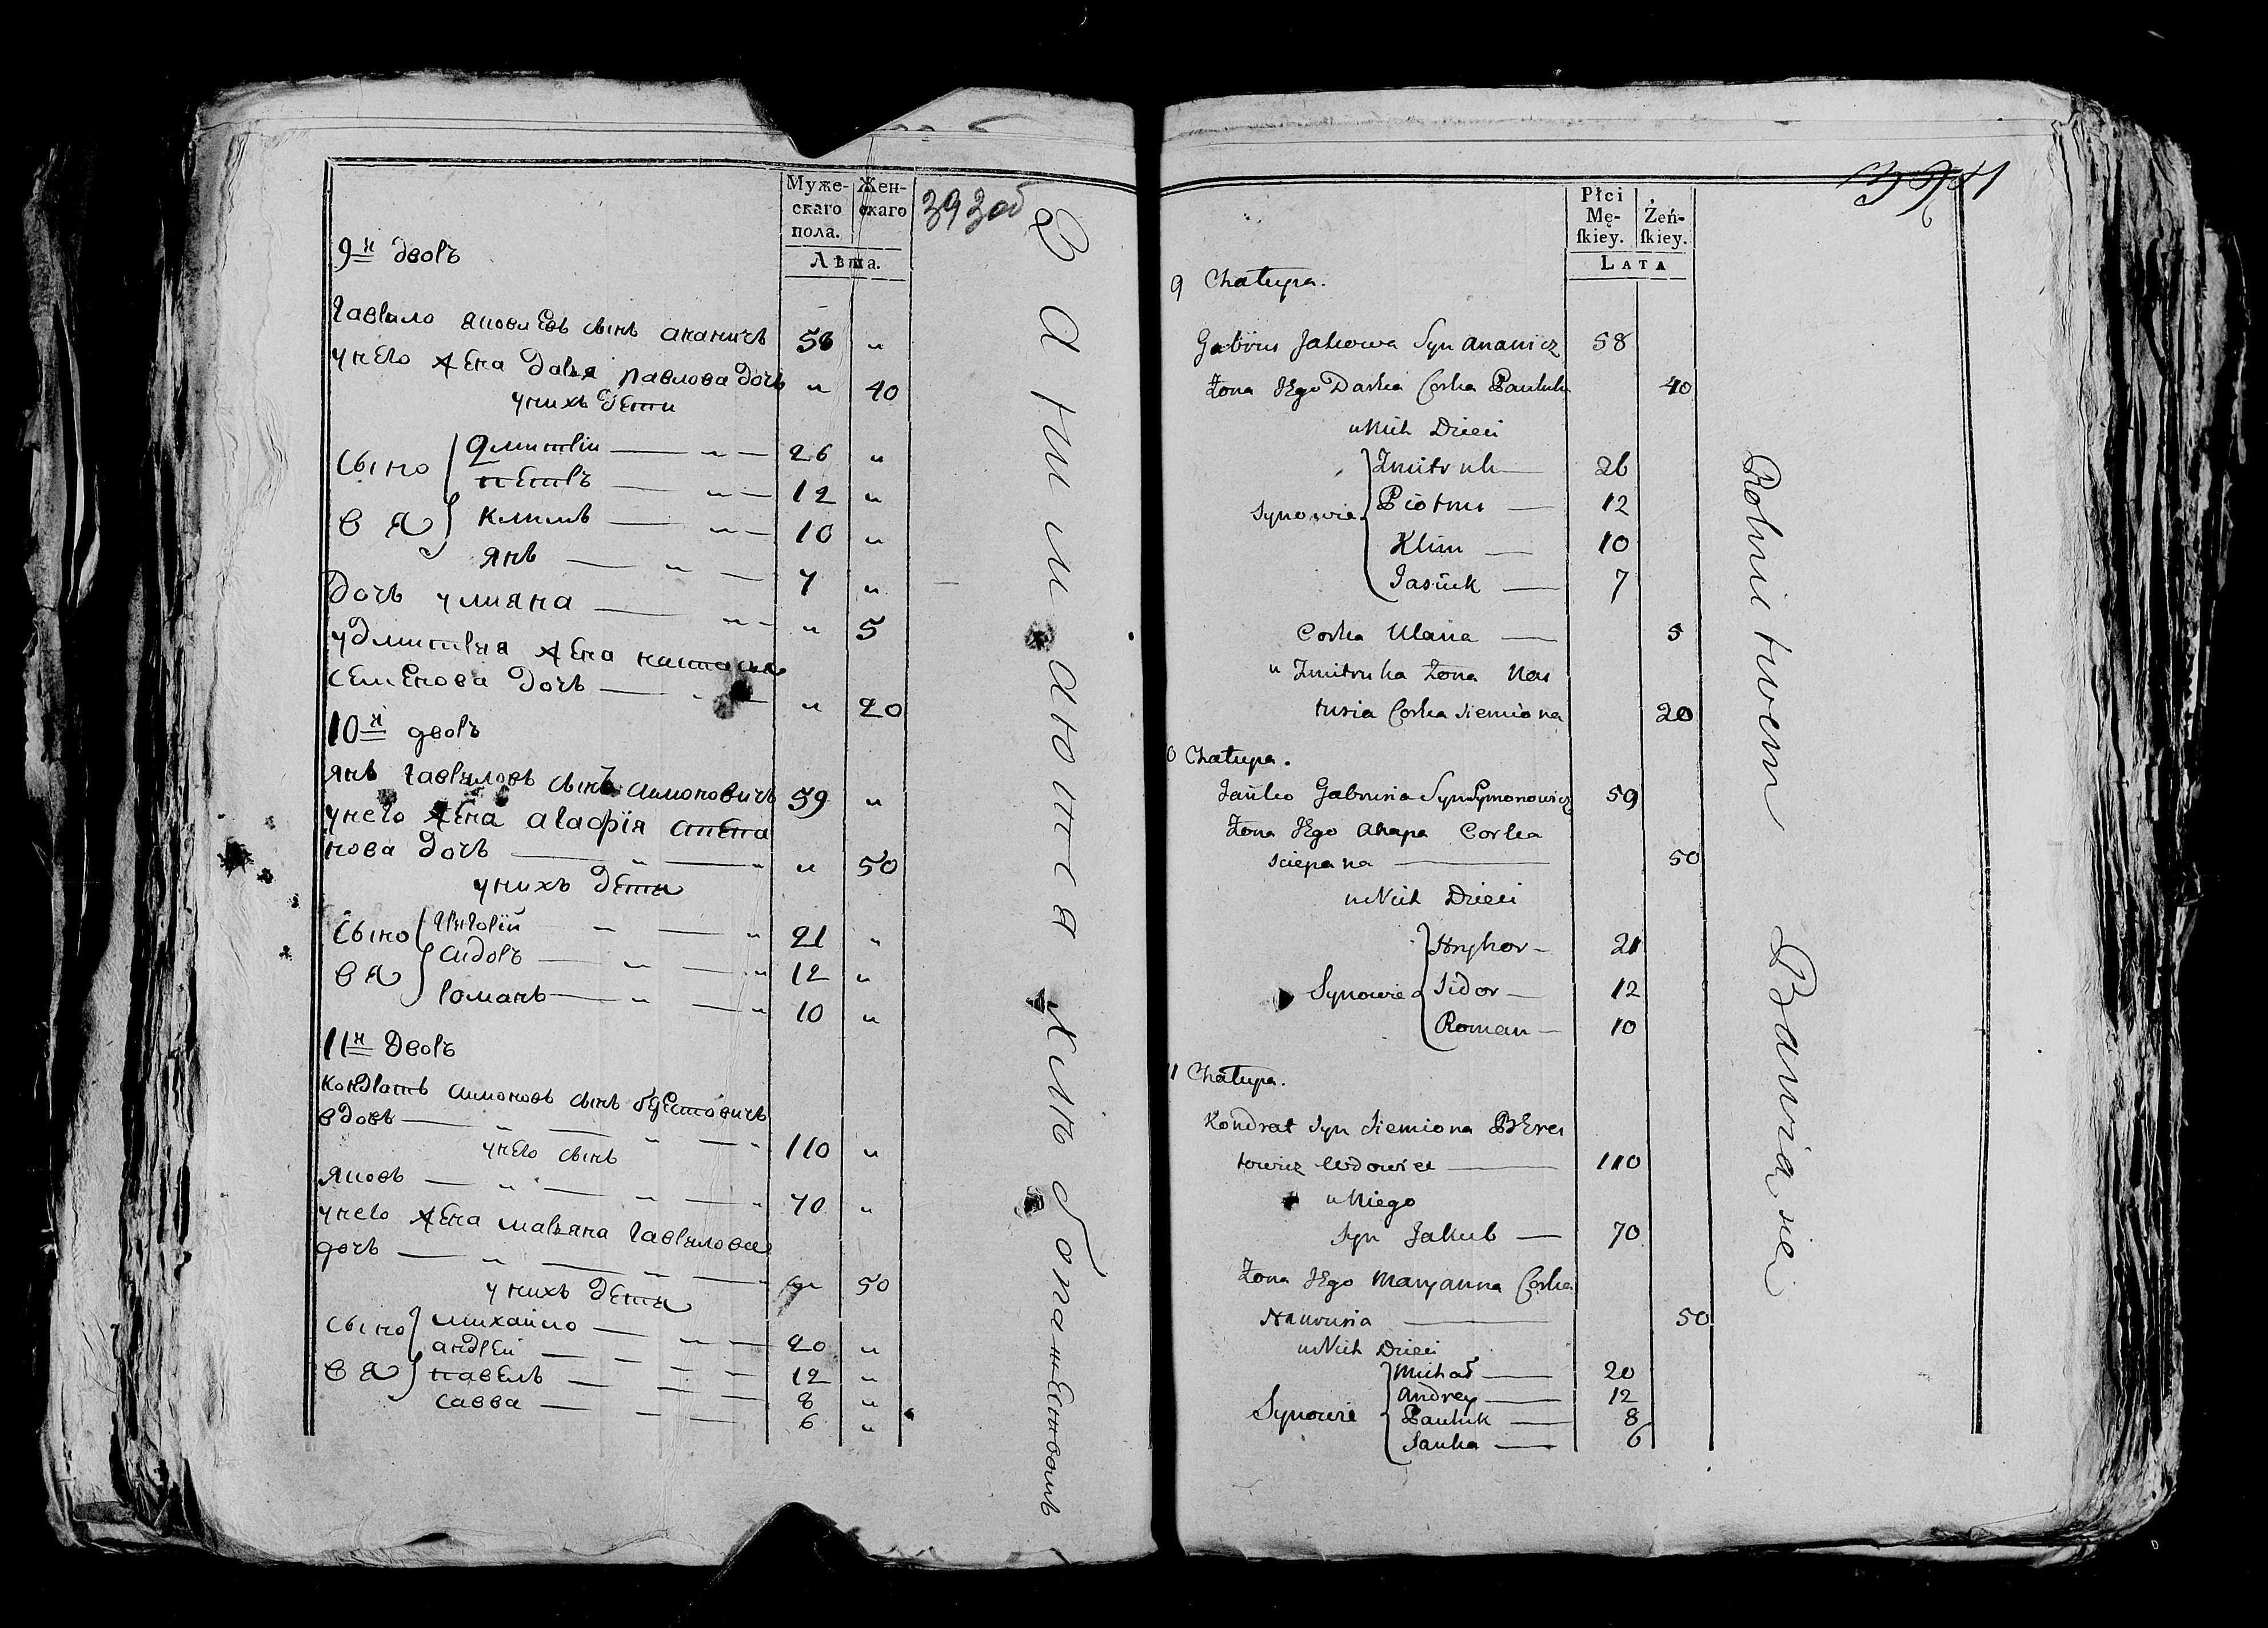 Муже- Жен-
скаго скаго
пола.
Лѣта.
393 об
9й дворъ
Гаврило яковлевъ сынъ ананичъ 58 "
унего жена дарья павлова дочь " 40
унихъ дети
Сыновя
Дмитрiи — " — 26 "
петръ — " — 12 "
климъ — " — 10 "
янъ — " — 7 "
Дочь улияна — " — " 5
удмитрия жена настася
семенова дочь — " 20
10й дворъ
янъ гаврыловъ сынъ симоновичъ 59 "
унего жена агафiя степа
нова дочь — " — " " 50
унихъ дети
Сыновя
григорiй — " — " 21 "
сидоръ — " — " 12 "
романъ — " — " 10 "
11й дворъ
кондратъ симоновъ сынъ берестовичъ
вдовъ — " — " — " 110 "
унего сынъ
яковъ — " — " — " 70 "
унего жена марьяна гаврылова
дочь — " — " — " " 50
унихъ дети
Сыновя
михайло — " — 20 "
андрей — — — 12 "
павелъ — — — 8 "
савва — — — 6 "
Занимаются хлѣбопашествомъ
Płci
Mę- Żeń-
ſkiey. ſkiey.
LATA
9 Chałupa.
Gabrus Jakowa Syn Ananicz 58
Żona Jego Darka Corka Pauluka 40
u Nich Dzieci
Synowie
Zmitruk — 26
Piotrus — 12
Klim — 10
Jasiuk — 7
Corka Ulana — 5
u Zmitruka Żona Nas
tusia Corka Siemiona 20
0 Chałupa.
Janko Gabrusia Syn Symonowicz 59
Żona Jego Ahapa Corka
Sciepana — 50
u Nich Dzieci
Synowie
Hryhor — 21
Sidor — 12
Roman — 10
11 Chałupa.
Kondrat Syn Siemiona Beres
towicz Wdowiec — 110
u Niego
Syn Jakub — 70
Żona Jego Maryanna Corka
Haurusia — 50
u Nich Dzieci
Synowie
Michał — 20
Andrey — 12
Pauluk — 8
Sauka — 6
Rolnictwem Bawią się